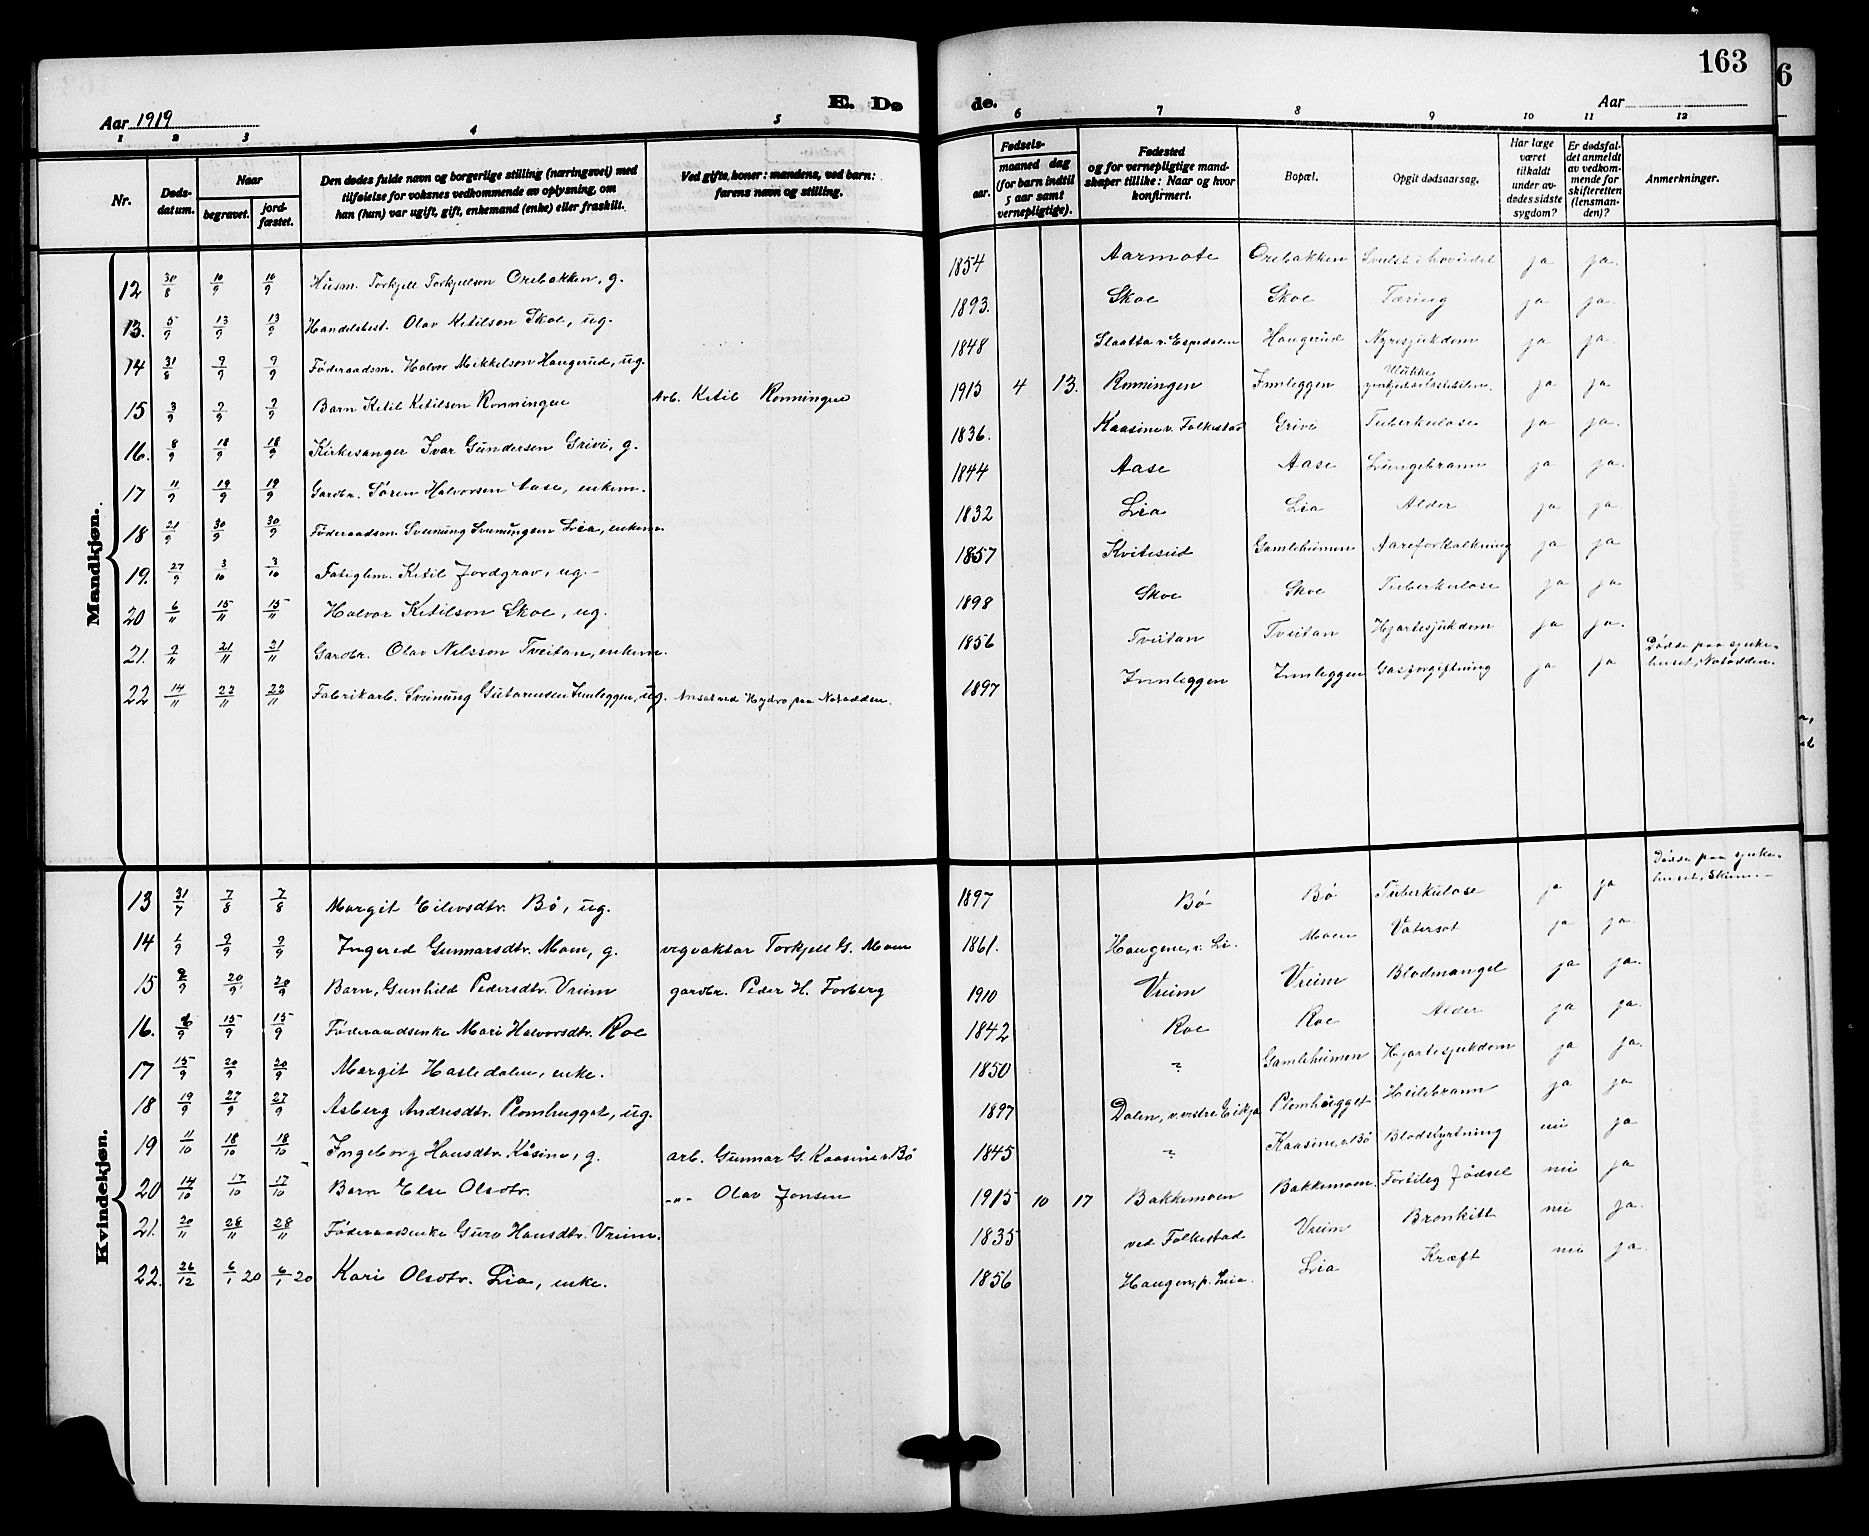 163
6
Aar 1919
E. Dø
de.
Aar
1 2 3 4 5 6 7 8 9 10 11 12
Nr.
Døds-
datum.
Naar
begravet.
jord-
fæstet.
Den dødes fulde navn og borgerlige stilling (næringsvei) med
tilføielse for voksnes vedkommende av oplysning, om
han (hun) var ugift, gift, enkemand (enke) eller fraskilt.
Ved gifte koner: mandens, ved barn:
farens navn og stilling.
Fødsels-
aar.
maaned dag
(for barn indtil
5 aar samt
vernepligtige).
Fødested
og for vernepligtige mand-
skaper tillike: Naar og hvor
konfirmert.
Bopæl.
Opgit dødsaarsag.
Har læge
været
tilkaldt
under av-
dødes sidste
sygdom?
Er dødsfal-
det anmeldt
av vedkom-
mende for
skifteretten
(lensman-
den)?
Anmerkninger.
Mandkjøn.
12 30/8 10/9 10/9 Husm. Torkjell Torkjelson Orebakken, g. 1854 Aarmote Orebakken Svulst i hovudet ja ja.
13. 5/9 13/9 13/9 Handelsbest. Olav Ketilson Skoe, ug. 1893. Skoe Skoe Tæring ja ja.
14 31/8 9/9 9/9 Føderaadsm. Halvor Mikkelson Haugerud, ug. 1848 Slaatta v. Espedalen Haugerud Nyresjukdom ja ja.
15 3/9 9/9 9/9 Barn Ketil Ketilson Rønningen Arb. Ketil Rønningen 1915 4 13. Rønningen Innleggen Ulukke ja ja
16. 8/9 18/9 18/9 Kirkesanger Ivar Gundersen Grivi, g. 1836. Kaasine v. Folkestad Grivi Tuberkulose ja ja.
17 11/9 19/9 19/9 Gardbr. Søren Halvorsen Aase, enkem. 1844 Aase Aase Lungebrann ja ja.
18 21/9 30/9 30/9 Føderaadsm. Sveinung Sveinungsen Lia, enkem. 1832 Lia Lia Alder ja ja.
19. 27/9 3/10 3/10 Fatiglem. Ketil Jordgrav, ug. 1857 Kviteseid Gamleheimen Aareforkalkning ja ja
20 6/11 15/11 15/11 Halvor Ketilson Skoe, ug. 1898 Skoe Skoe Tuberkulose ja ja.
21. 9/11 21/11 21/11 Gardbr. Olav Nilsson Tveitan, enkem. 1856 Tveitan Tveitan Hjartesjukdom ja ja.
22 14/11 22/11 22/11 Fabrikarb. Sveinung Guttormsen Innleggen, ug. Ansat ved Hydro paa Notodden. 1897 Innleggen Innleggen Gasforgiftning ja ja Dødde paa sjuke-
huset, Notodden.
Kvindekjøn.
13 31/7 7/8 7/8 Margit Eilevsdtr. Bø, ug. 1897 Bø Bø Tuberkulose ja ja Dødde paa sjuke-
huset, Skien.
14 1/9 9/9 9/9 Ingered Gunnarsdtr. Moen, g. vegvaktar Torkjell G. Moen 1861. Haugene, v. Li. Moen Vatersot ja ja.
15 9/9 20/9 20/9 Barn, Gunhild Pedersdtr. Vreim gardbr. Peder H. Forberg 1910 Vreim Vreim Blodmangel ja ja.
16. 6/9 15/9 15/9 Føderaadsenke Mari Halvorsdtr. Roe 1842 Roe Roe Alder ja ja.
17 15/9 20/9 20/9 Margit Hasledalen, enke. 1850 ? Gamleheimen Hjartesjukdom ja ja.
18 19/9 27/9 27/9 Asberg Andresdtr. Plomhugget, ug. 1897 Dalen, v. vestre Eikja Plomhugget Heilebrann ja ja
19 11/10 18/10 18/10 Ingeborg Hansdtr. Kåsine, g. arb. Gunnar G. Kaasine v. Bø 1845 ? Kaasine, v. Bø Blodstyrtning nei ja
20 14/10 17/10 17/10 Barn Else Olsdtr. -"- Olav Jonsen 1915 10 17 Bakkemoen Bakkemoen. Fortileg fødsel nei ja
21. 20/11 28/11 28/11 Føderaadsenke Guro Hansdtr. Vreim. 1835 ved Folkestad Vreim Bronkitt nei ja.
22. 26/12 6/1 20 6/1 20 Kari Olsdtr. Lia, enke. 1856 Haugen, p. Lia. Lia Kræft nei ja.